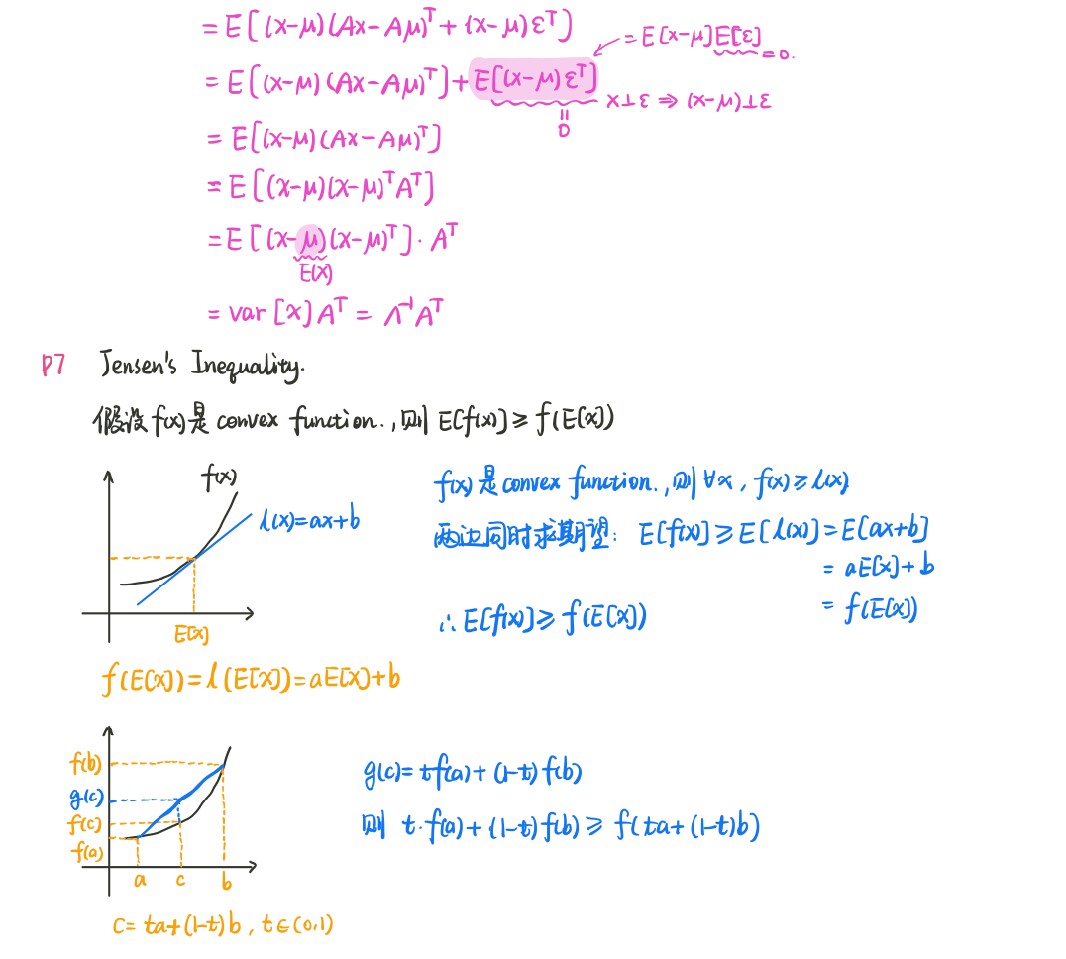 = E[(x-μ)(Ax-Aμ)ᵀ + (x-μ)εᵀ]
= E[x-μ]E[ε] = 0.
= E[(x-μ)(Ax-Aμ)ᵀ] + E[(x-μ)εᵀ]
x⊥ε ⇒ (x-μ)⊥ε
=
0
= E[(x-μ)(Ax-Aμ)ᵀ]
= E[(x-μ)(x-μ)ᵀAᵀ]
= E[(x-μ)(x-μ)ᵀ]·Aᵀ
E(x)
= var[x]Aᵀ = Λ⁻¹Aᵀ
P7 Jensen's Inequality.
假设f(x)是convex function.,则 E[f(x)] ≥ f(E[x])
f(x)
l(x)=ax+b
E[x]
f(E[x]) = l(E[x]) = aE[x]+b
f(x)是convex function.,则 ∀x, f(x) ≥ l(x)
两边同时求期望: E[f(x)] ≥ E[l(x)] = E[ax+b]
= aE[x]+b
= f(E[x])
∴ E[f(x)] ≥ f(E[x])
f(b)
g(c)
f(c)
f(a)
a c b
c = ta+(1-t)b, t∈(0,1)
g(c) = tf(a)+(1-t)f(b)
则 t·f(a)+(1-t)f(b) ≥ f(ta+(1-t)b)